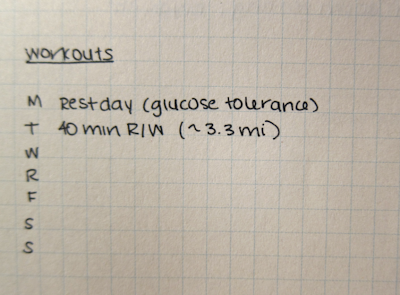 workouts
M Rest day (glucose tolerance)
T 40 min R/W (~3.3 mi)
W
R
F
S
S